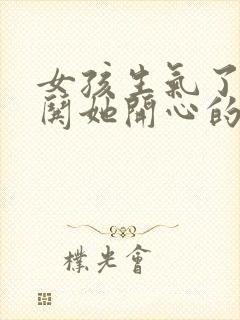 女孩生氣了
鬨她開心的
樸光會